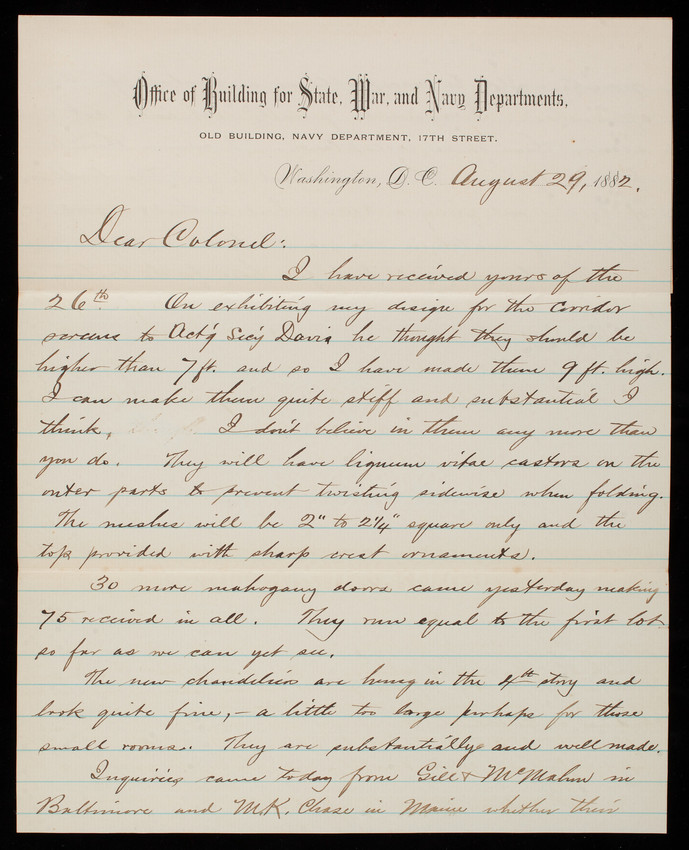 Office of Building for State, War, and Navy Departments,
OLD BUILDING, NAVY DEPARTMENT, 17TH STREET.
Washington, D. C. August 29, 1882.
Dear Colonel:
I have received yours of the
26th. On exhibiting my design for the corridor
screens to Act'g Sec'y Davis he thought they should be
higher than 7 ft. and so I have made them 9 ft. high.
I can make them quite stiff and substantial I
think, I don't believe in them any more than
you do. They will have lignum vitae castors on the
outer parts to prevent twisting sidewise when folding.
The meshes will be 2" to 2 1/4" square only and the
top provided with sharp crest ornaments.
30 more mahogany doors came yesterday making
75 received in all. They run equal to the first lot
so far as we can yet see.
The new chandeliers are hung in the 4th story and
look quite fine, - a little too large perhaps for those
small rooms. They are substantially and well made.
Inquiries came today from Gill & McMahon in
Baltimore and M.K. Chase in Maine whether their